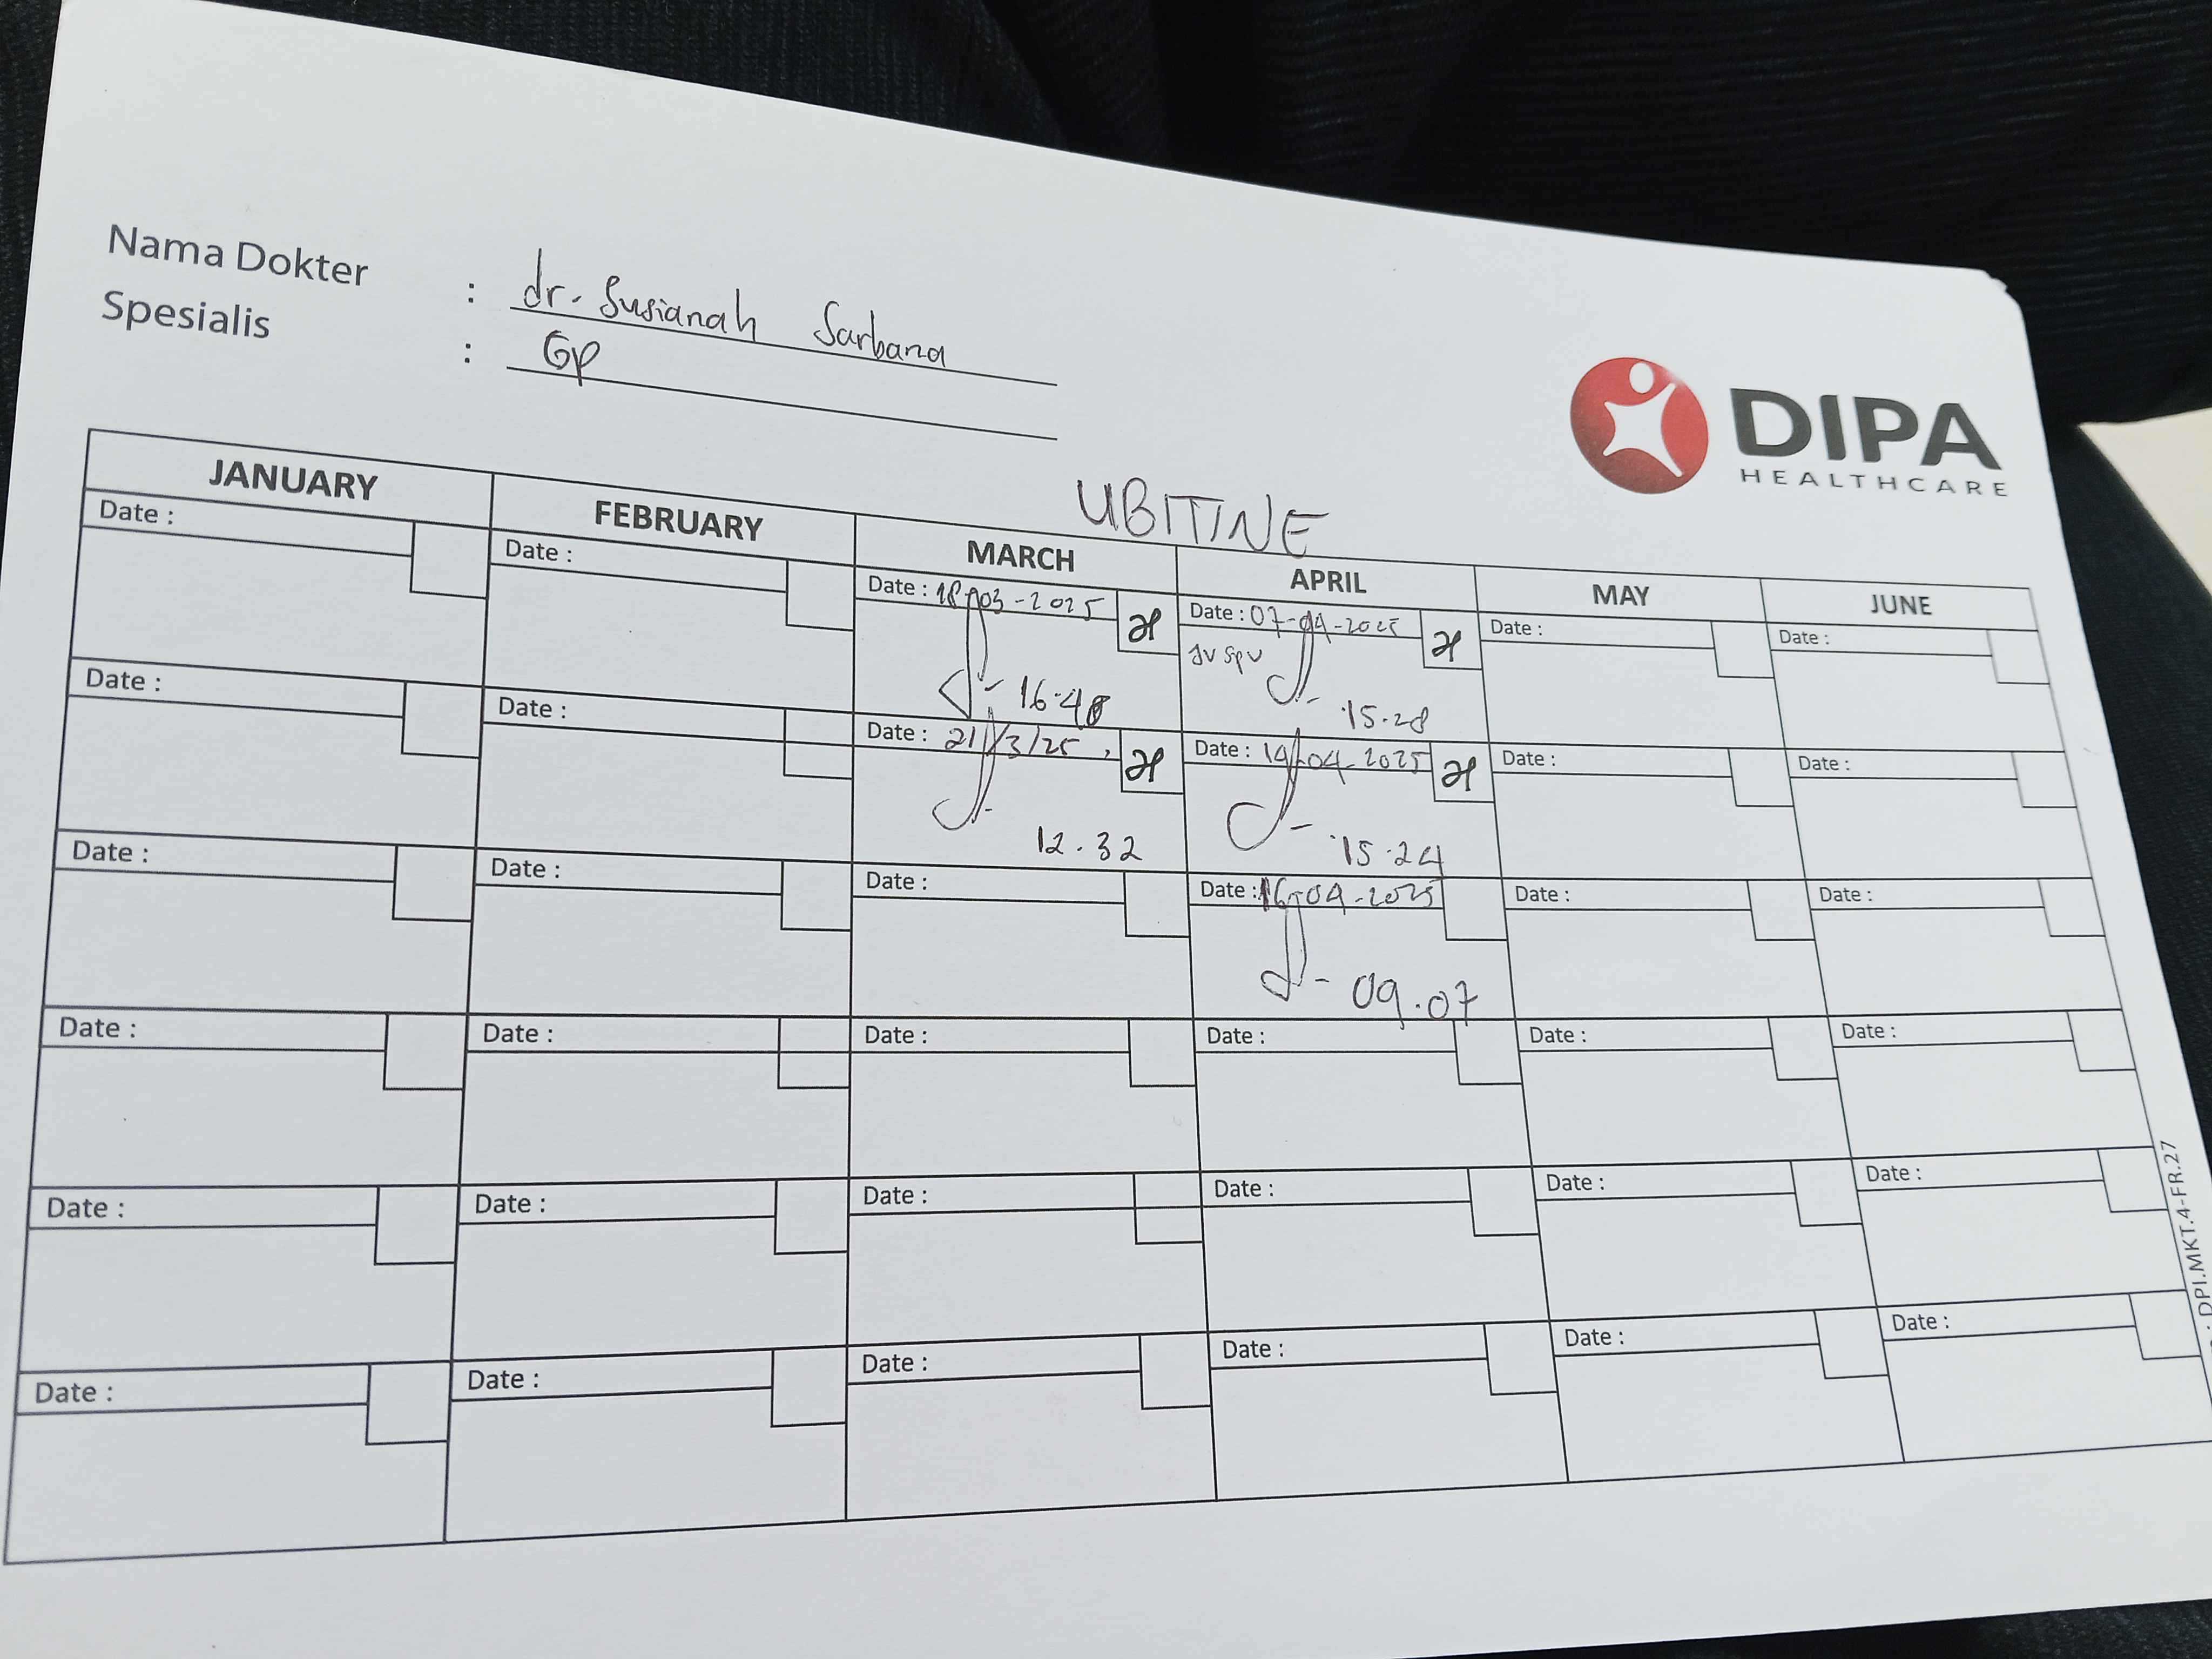 Nama Dokter : dr. Susianah Sarbana
Spesialis : GP
DIPA
HEALTHCARE
UBITINE
JANUARY FEBRUARY MARCH APRIL MAY JUNE
Date : Date : Date : 18-03-2025 Date : 07-04-2025 Date : Date :
JV SPV
16.48 15.28
Date : Date : Date : 21/3/25 Date : 14-04-2025 Date : Date :
12.32 15.24
Date : Date : Date : Date : 16-04-2025 Date : Date :
09.07
Date : Date : Date : Date : Date : Date :
Date : Date : Date : Date : Date : Date :
Date : Date : Date : Date : Date : Date :
: DPI.MKT.4-FR.27